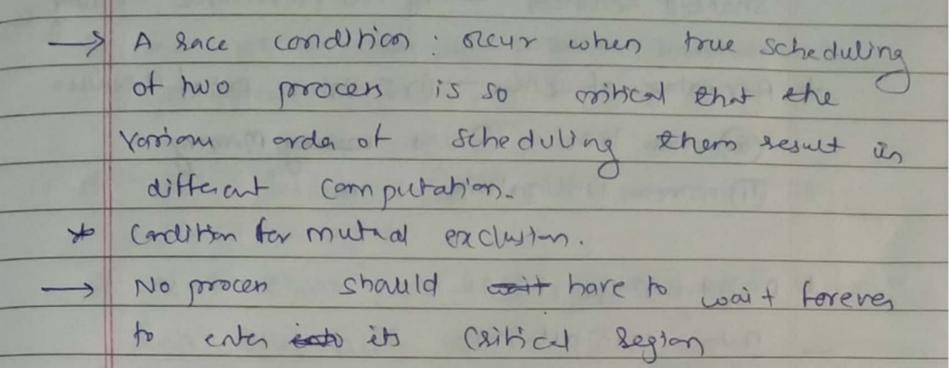 → A race condition : occur when true scheduling
of two process is so critical that the
various order of scheduling them result in
different computation.
* Condition for mutual exclusion.
→ No process should wait have to wait forever
to enter into its critical region